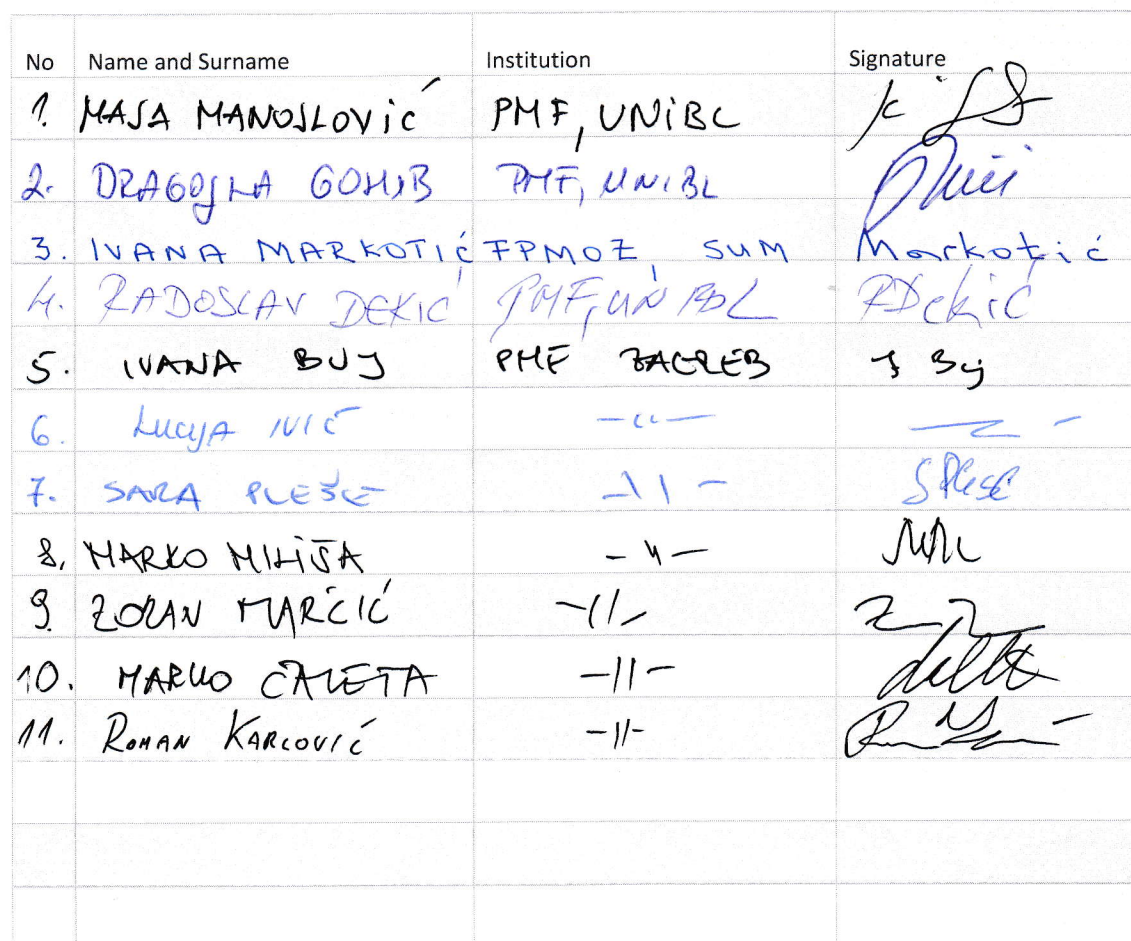 No Name and Surname Institution Signature
1. MAJA MANOJLOVić PMF, UNiBL
2. DRAGOJLA PMF, UNIBL
3. IVANA MARKOTIć FPMOZ, SUM Markotić
4. RADOSLAV DEKIĆ PMF, UNIBL RDekić
5. IVANA BUJ PMF ZAGREB I Buj
6. LUCIJA IVIĆ -॥-
7. SARA PLEŠE -11-
8. MARKO MILIŠA -11-
9. ZORAN MARČIĆ -11-
10. MARKO ĆALETA -11-
11. ROMAN KARLOVIĆ -11-